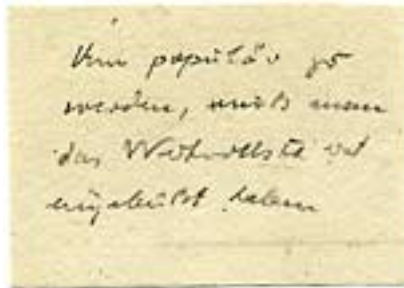 Um populär zu
werden, muß man
das Wertvollste
eingebüßt haben